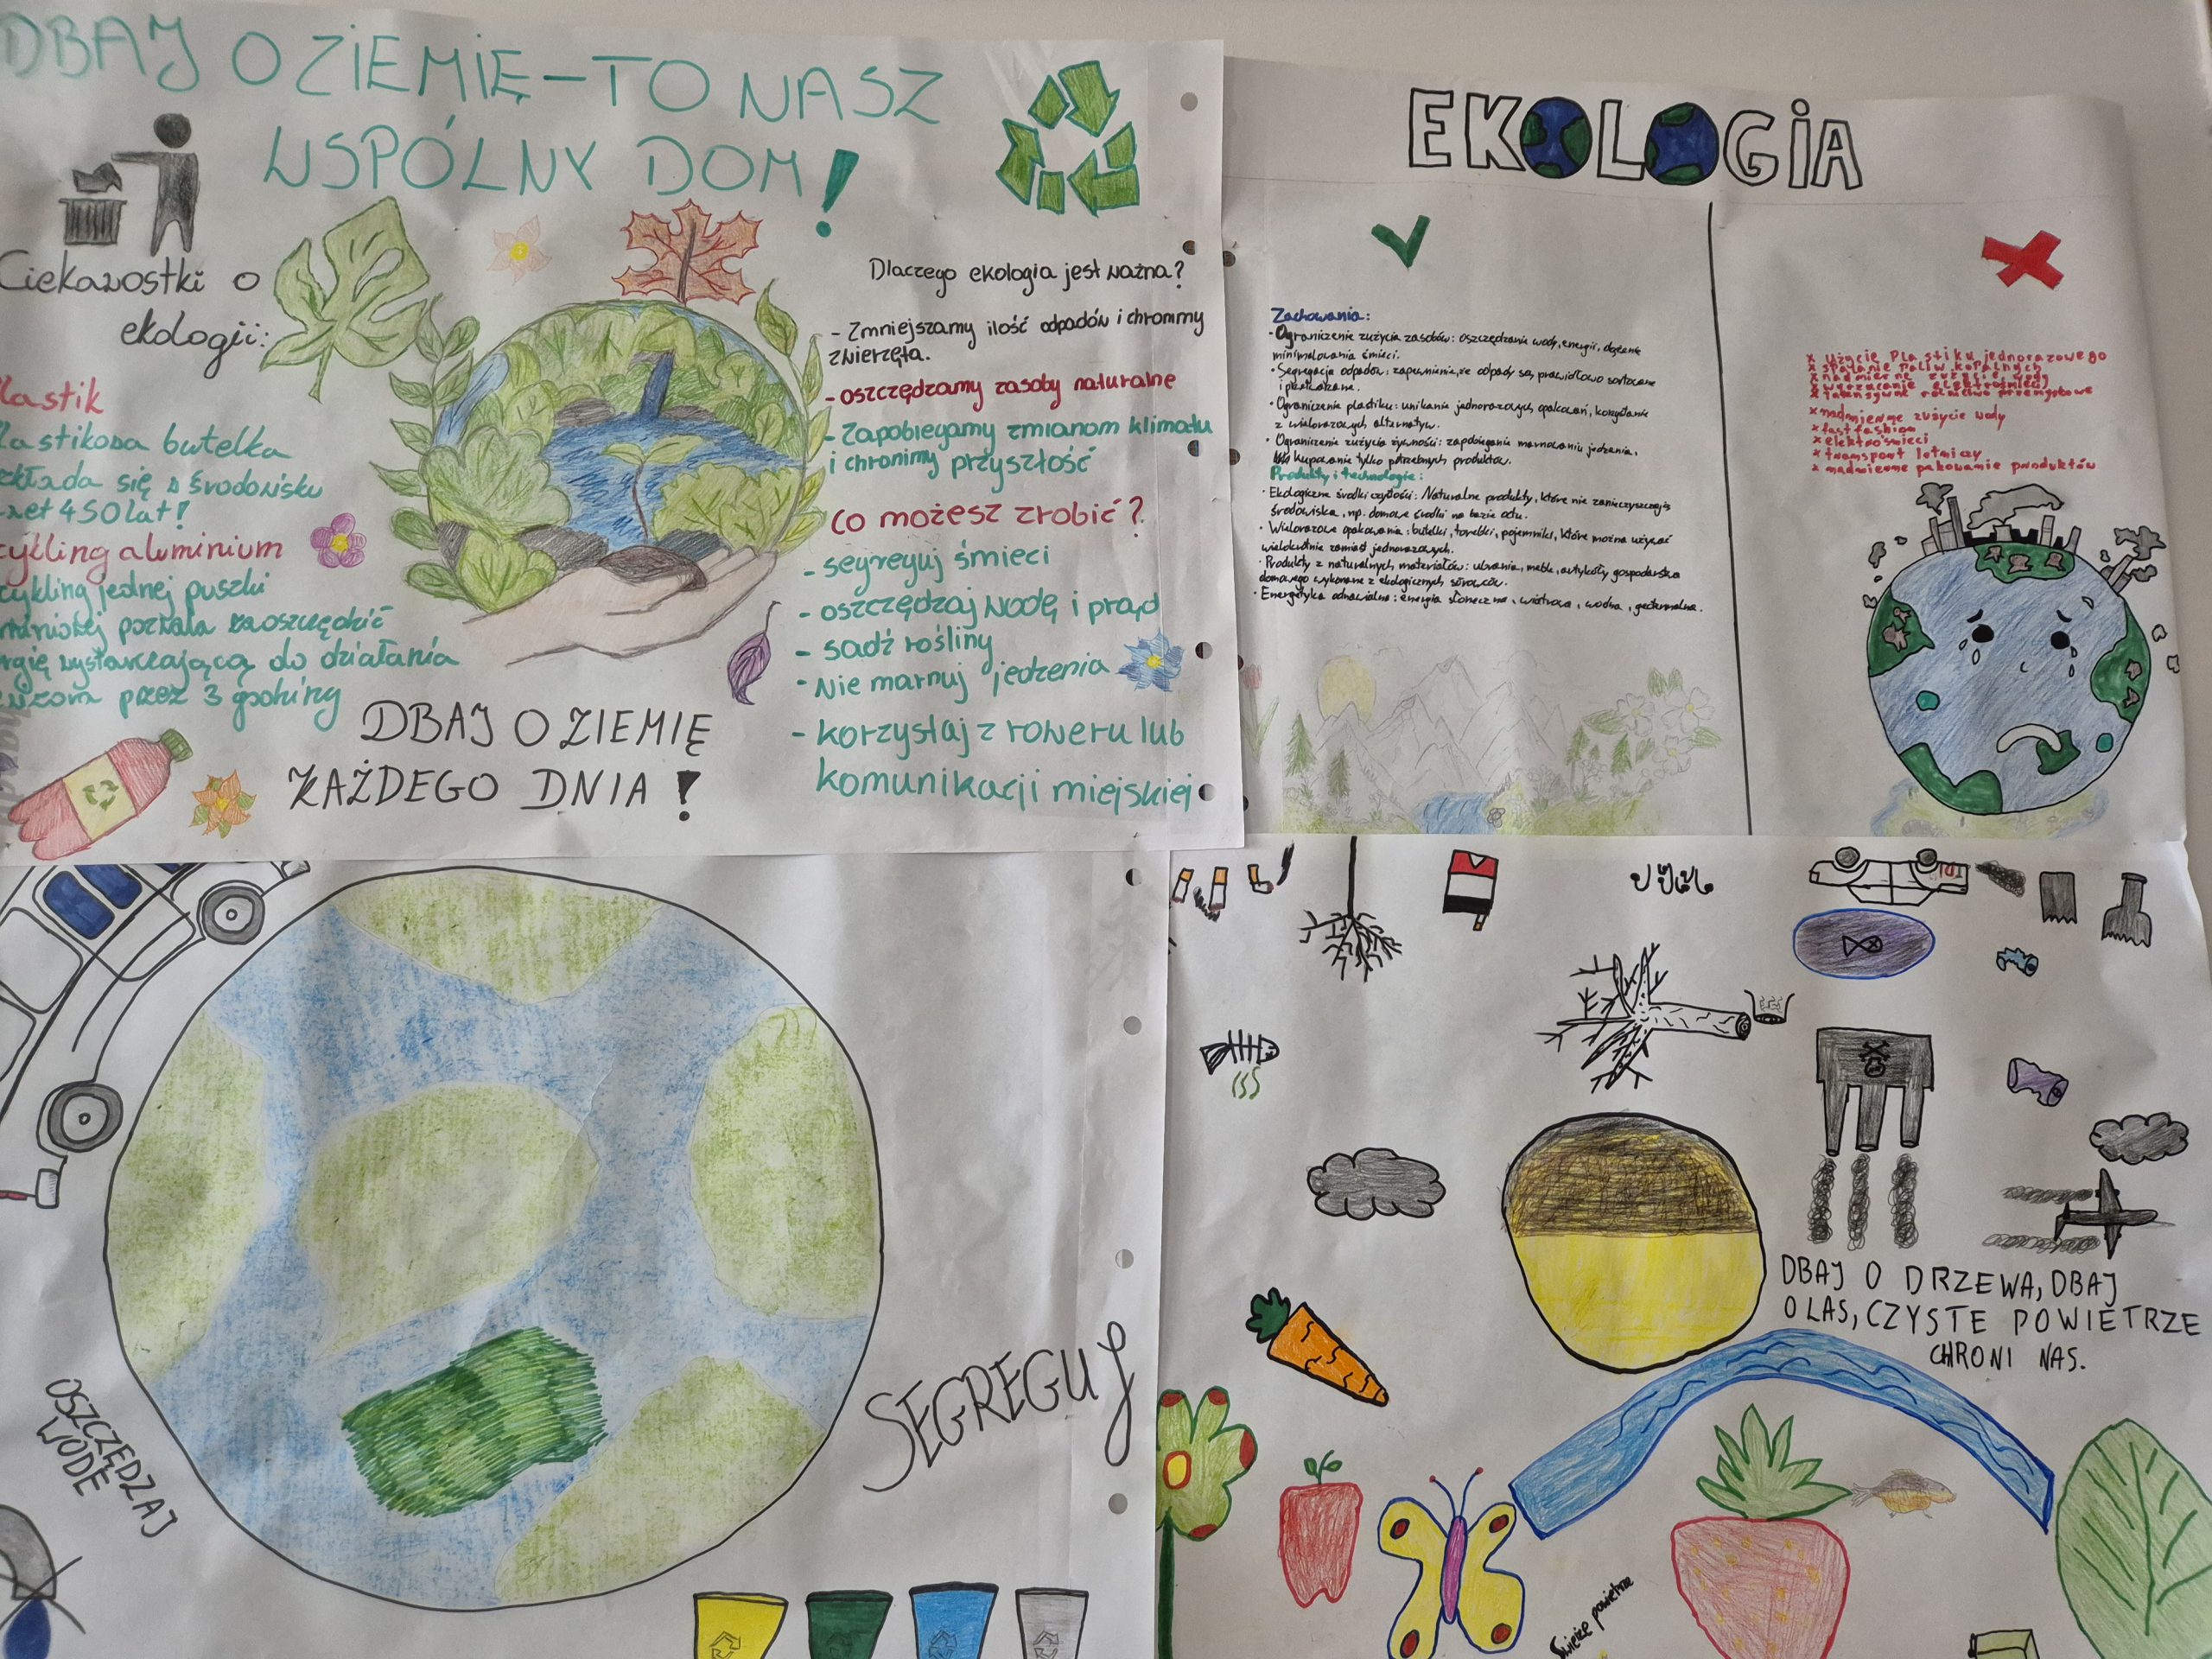 DBAJ O ZIEMIĘ – TO NASZ
WSPÓLNY DOM!
Ciekawostki o
ekologii:
lastik
lastikowa butelka
kłada się w środowisku
wet 450 lat!
cykling aluminium
cykling jednej puszki
pozwala zaoszczędzić
rgię wystarczającą do działania
przez 3 godziny
DBAJ O ZIEMIĘ
KAŻDEGO DNIA!
Dlaczego ekologia jest ważna?
- Zmniejszamy ilość odpadów i chronimy
zwierzęta.
- oszczędzamy zasoby naturalne
- Zapobiegamy zmianom klimatu
i chronimy przyszłość
Co możesz zrobić?
- segreguj śmieci
- oszczędzaj wodę i prąd
- sadź rośliny
- Nie marnuj jedzenia
- korzystaj z roweru lub
komunikacji miejskiej
EKOLOGIA
Zachowania:
· Ograniczenie zużycia zasobów: oszczędzanie wody, energii, dążenie
minimalowania śmieci.
· Segregacja odpadów: zapewnienie, że odpady są prawidłowo sortowane
i przetwarzane.
· Ograniczenie plastiku: unikanie jednorazowych opakowań, korzystanie
z wielorazowych alternatyw.
· Ograniczenie zużycia żywności: zapobieganie marnowaniu jedzenia,
kupowanie tylko potrzebnych produktów.
Produkty i technologie:
· Ekologiczne środki czystości: Naturalne produkty, które nie zanieczyszczają
środowiska, np. domowe środki na bazie octu.
· Wielorazowe opakowania: butelki, torebki, pojemniki, które można używać
wielokrotnie zamiast jednorazowych.
· Produkty z naturalnych materiałów: ubrania, meble, artykóły gospodarstwa
domowego wykonane z ekologicznych surowców.
· Energetyka odnawialna: energia słoneczna, wiatrowa, wodna, geotermalna.
x użycie plastiku jednorazowego
x spalanie paliw kopalnych
x nadmierne zużycie wody
x wyrzucanie elektrośmieci
x intensywne rolnictwo przemysłowe
x nadmierne zużycie wody
x fast fashion
x elektrośmieci
x transport lotniczy
x nadmierne pakowanie produktów
OSZCZĘDZAJ
WODĘ
SEGREGUJ
TDI
DBAJ O DRZEWA, DBAJ
O LAS, CZYSTE POWIETRZE
CHRONI NAS.
Świeże powietrze